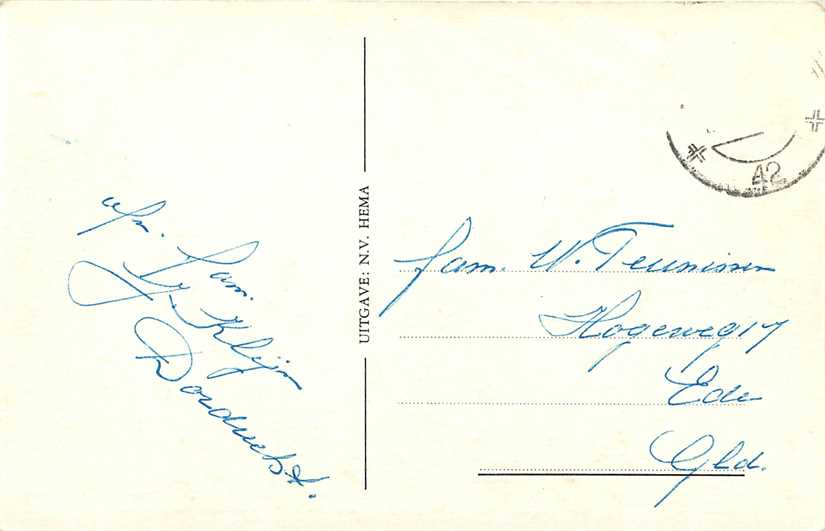 Afz. Fam.
Kleijn
Dordrecht.
UITGAVE: N.V. HEMA
42
fam. W. Teunissen
Hogeweg 17
Ede
Gld.